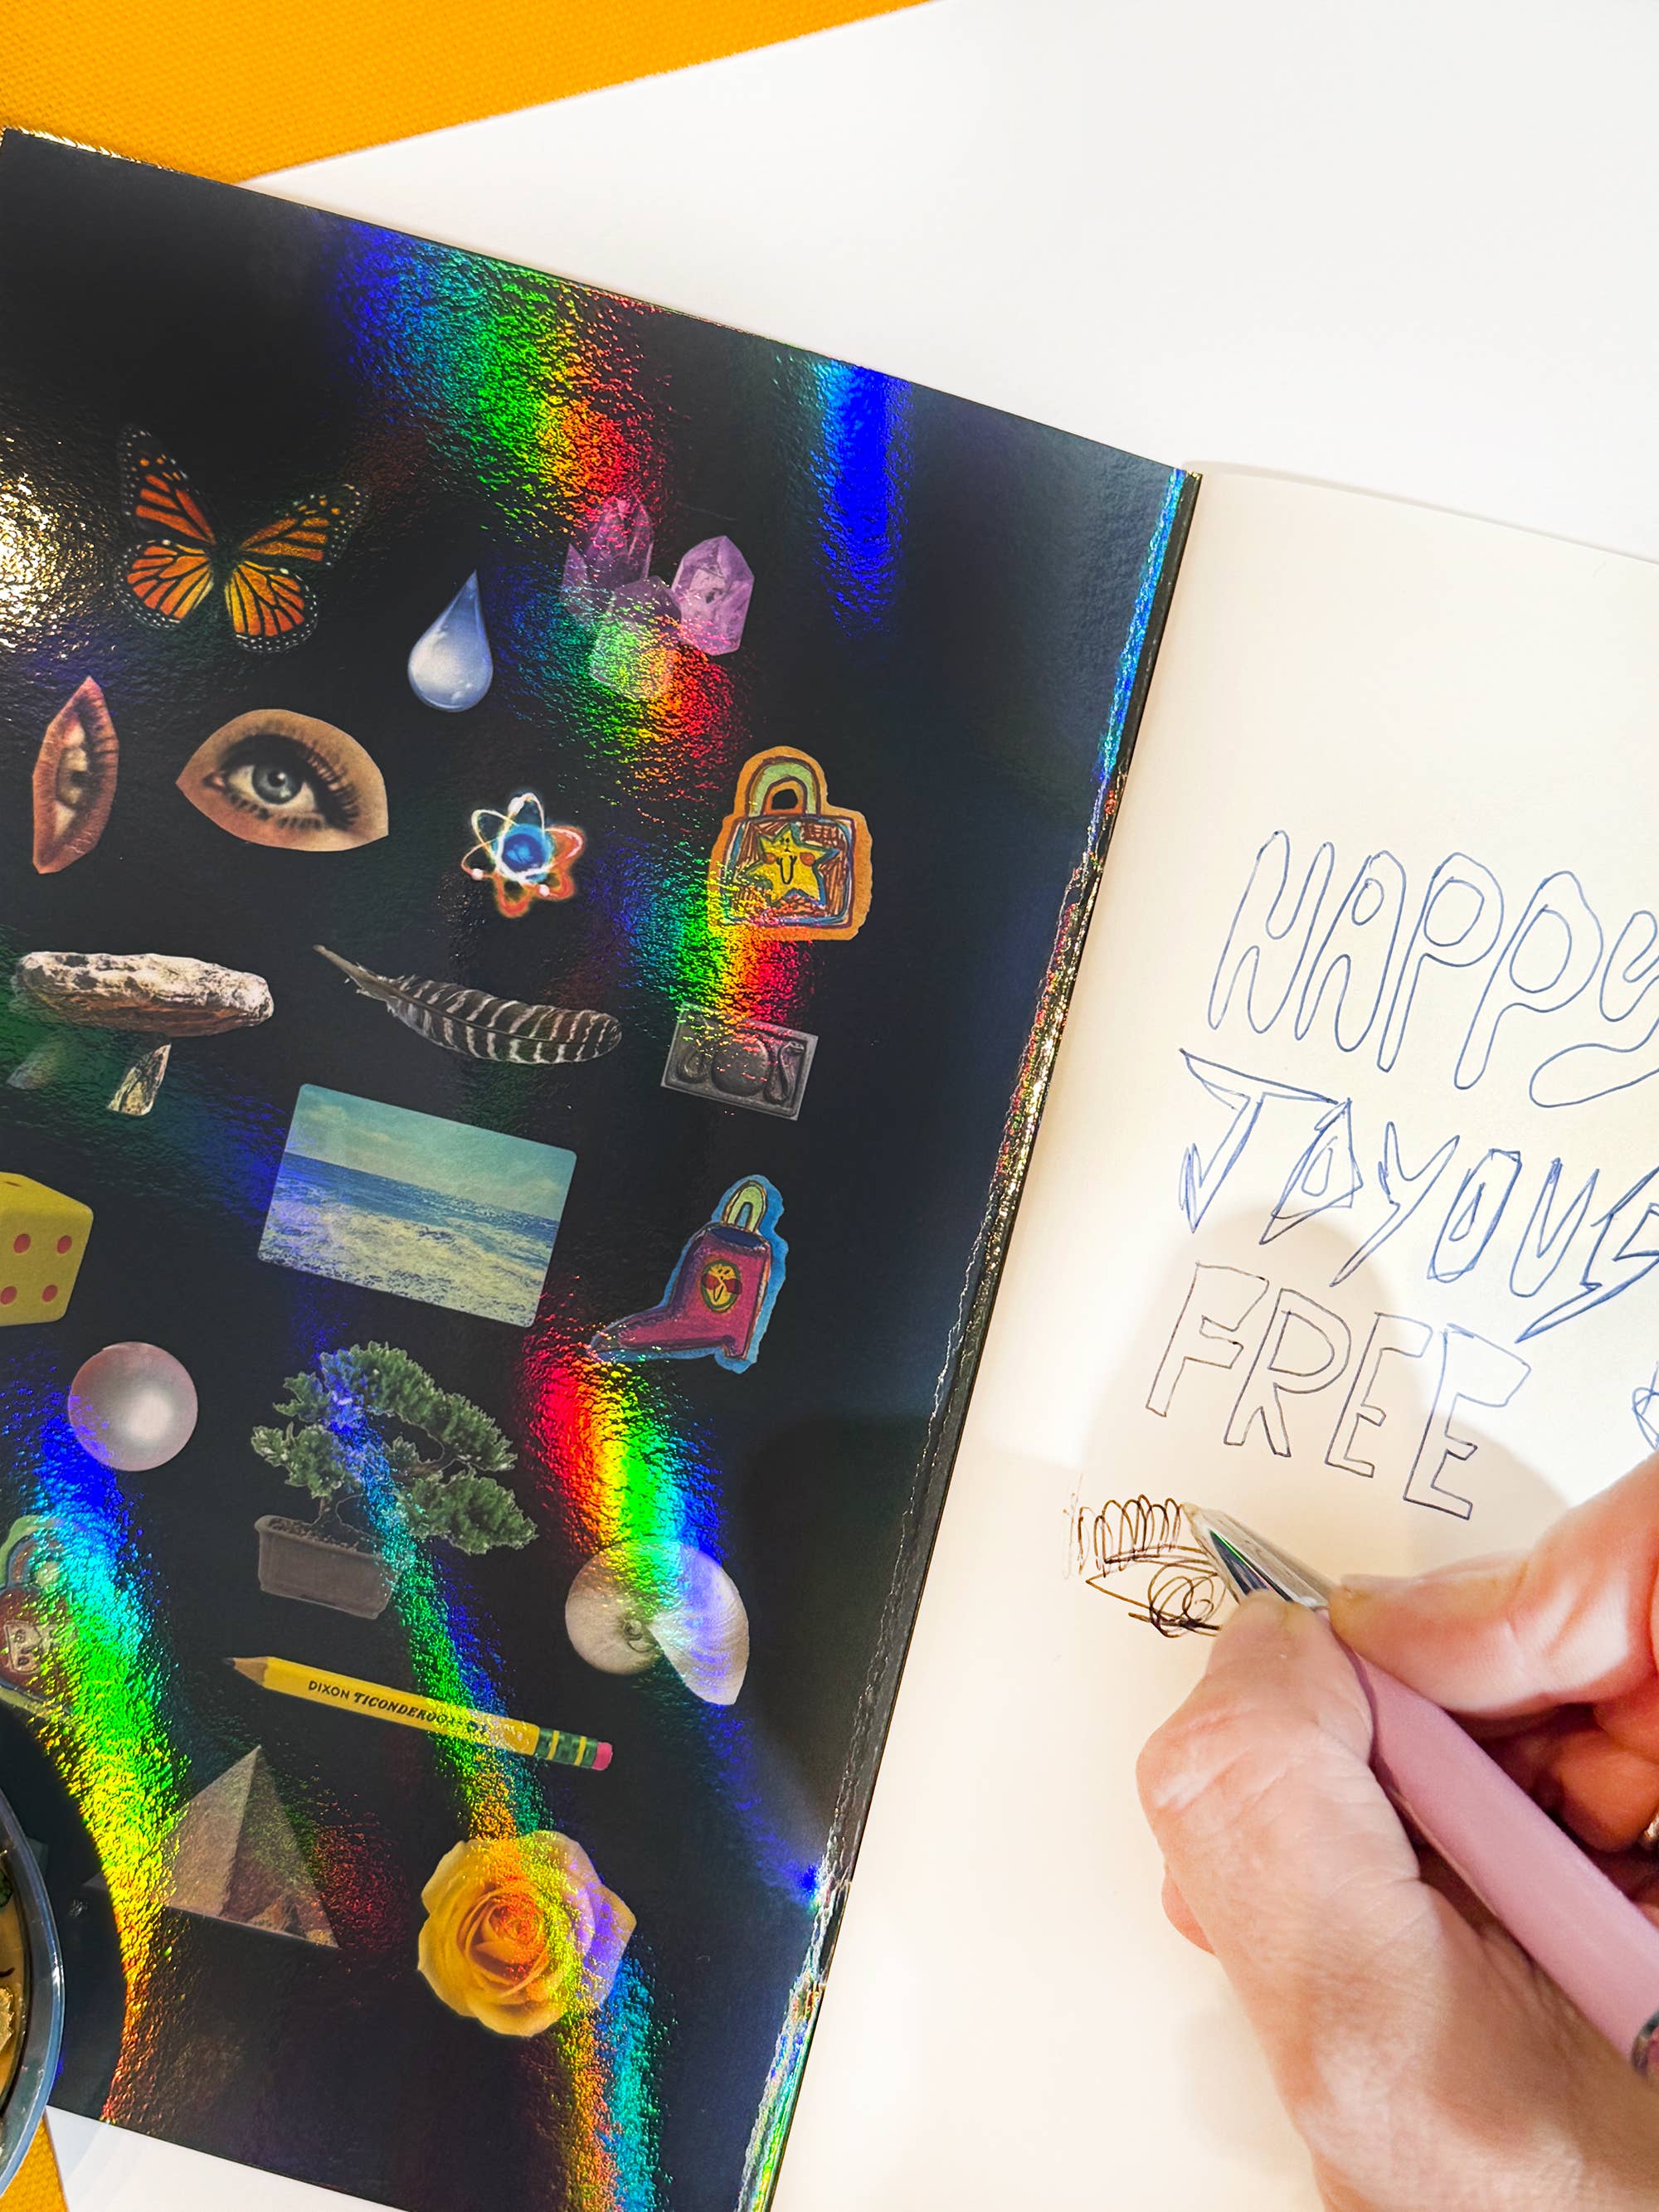 HAPPY
JOYOUS
FREE
DIXON TICONDEROGA